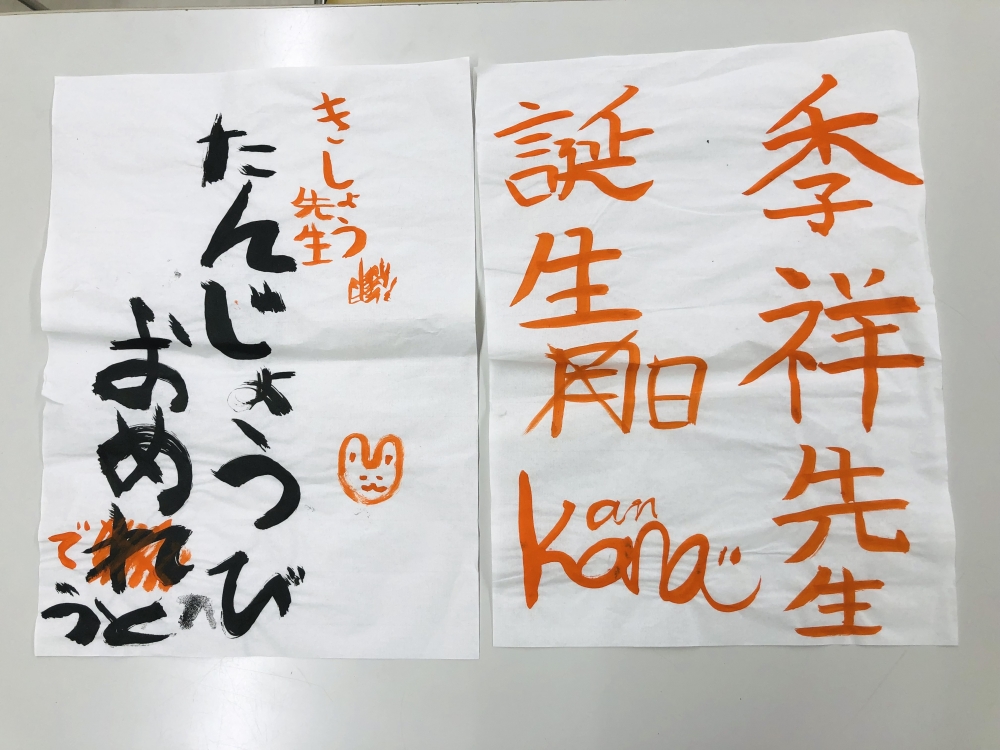 季祥先生
誕生日
an
Kana
きしょう
先生
たんじょうび
おめでとう